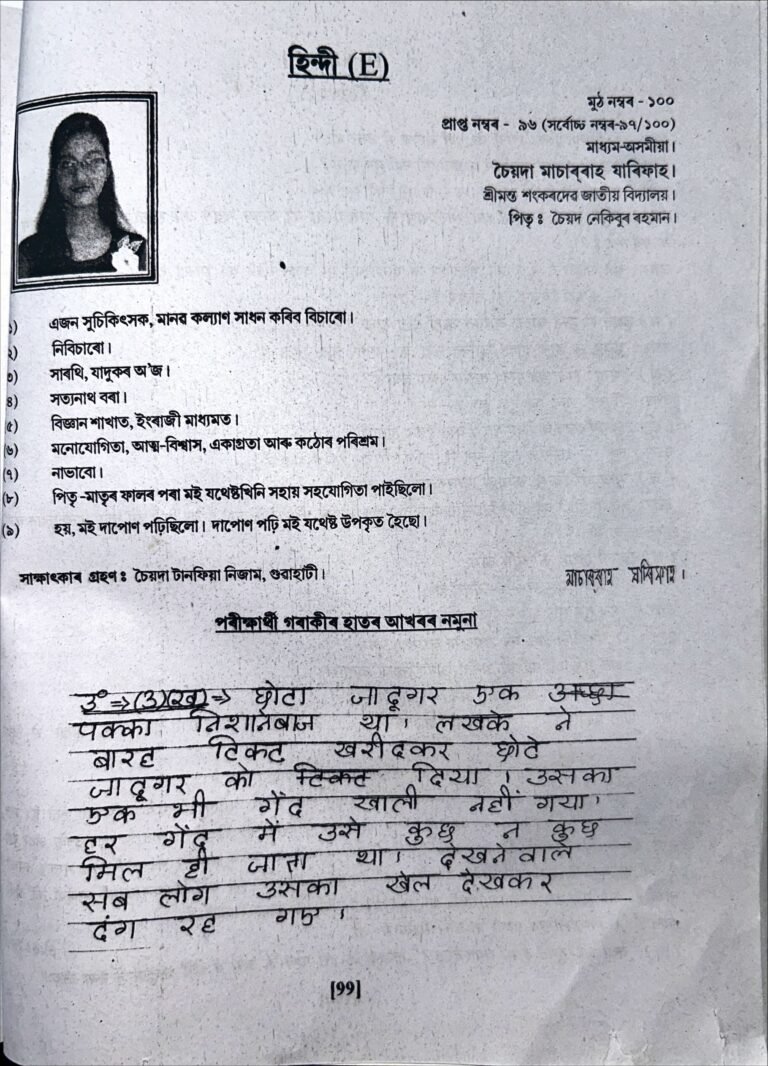 হিন্দী (E)
মুঠ নম্বৰ - ১০০
প্ৰাপ্ত নম্বৰ - ৯৬ (সৰ্বোচ্চ নম্বৰ-৯৭/১০০)
মাধ্যম-অসমীয়া।
চৈয়দা মাচাৰ্ৰাহ যাৰিফাহ।
শ্ৰীমন্ত শংকৰদেব জাতীয় বিদ্যালয়।
পিতৃঃ চৈয়দ নেকিবুৰ ৰহমান।
১) এজন সুচিকিৎসক, মানৱ কল্যাণ সাধন কৰিব বিচাৰো।
২) নিবিচাৰো।
৩) সাৰথি, যাদুকৰ অ'জ।
৪) সত্যনাথ বৰা।
৫) বিজ্ঞান শাখাত, ইংৰাজী মাধ্যমত।
(৬) মনোযোগিতা, আত্ম-বিশ্বাস, একাগ্ৰতা আৰু কঠোৰ পৰিশ্ৰম।
(৭) নাভাবো।
(৮) পিতৃ-মাতৃৰ ফালৰ পৰা মই যথেষ্টখিনি সহায় সহযোগিতা পাইছিলো।
(৯) হয়, মই দাপোণ পঢ়িছিলো। দাপোণ পঢ়ি মই যথেষ্ট উপকৃত হৈছো।
সাক্ষাৎকাৰ গ্ৰহণঃ চৈয়দা টানফিয়া নিজাম, গুৱাহাটী।
মাচাৰ্ৰাহ যাৰিফাহ।
পৰীক্ষাৰ্থী গৰাকীৰ হাতৰ আখৰৰ নমুনা
उ° ⇒ (3)(ख) ⇒ छोटा जादूगर एक अच्छा
पक्का निशानेबाज था। लखके ने
बारह टिकट खरीदकर छोटे
जादूगर को टिकट दिया। उसका
एक भी गेंद खाली नहीं गया।
हर गेंद में उसे कुछ न कुछ
मिल ही जाता था। देखनेवाले
सब लोग उसका खेल देखकर
दंग रह गए।
[99]